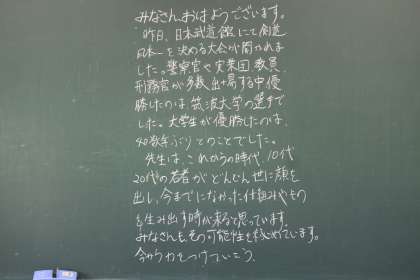 みなさん、おはようございます。
昨日、日本武道館にて剣道
日本一を決める大会が開かれま
した。警察官や実業団、教員、
刑務官が多数出場する中、優
勝したのは筑波大学の選手で
した。大学生が優勝したのは、
40数年ぶりとのことでした。
先生は、これからの時代、10代
20代の若者がどんどん世に顔を
出し、今までになかった仕組みやもの
を生み出す時が来ると思っています。
みなさんも、その可能性を秘めています。
今から力をつけていこう。